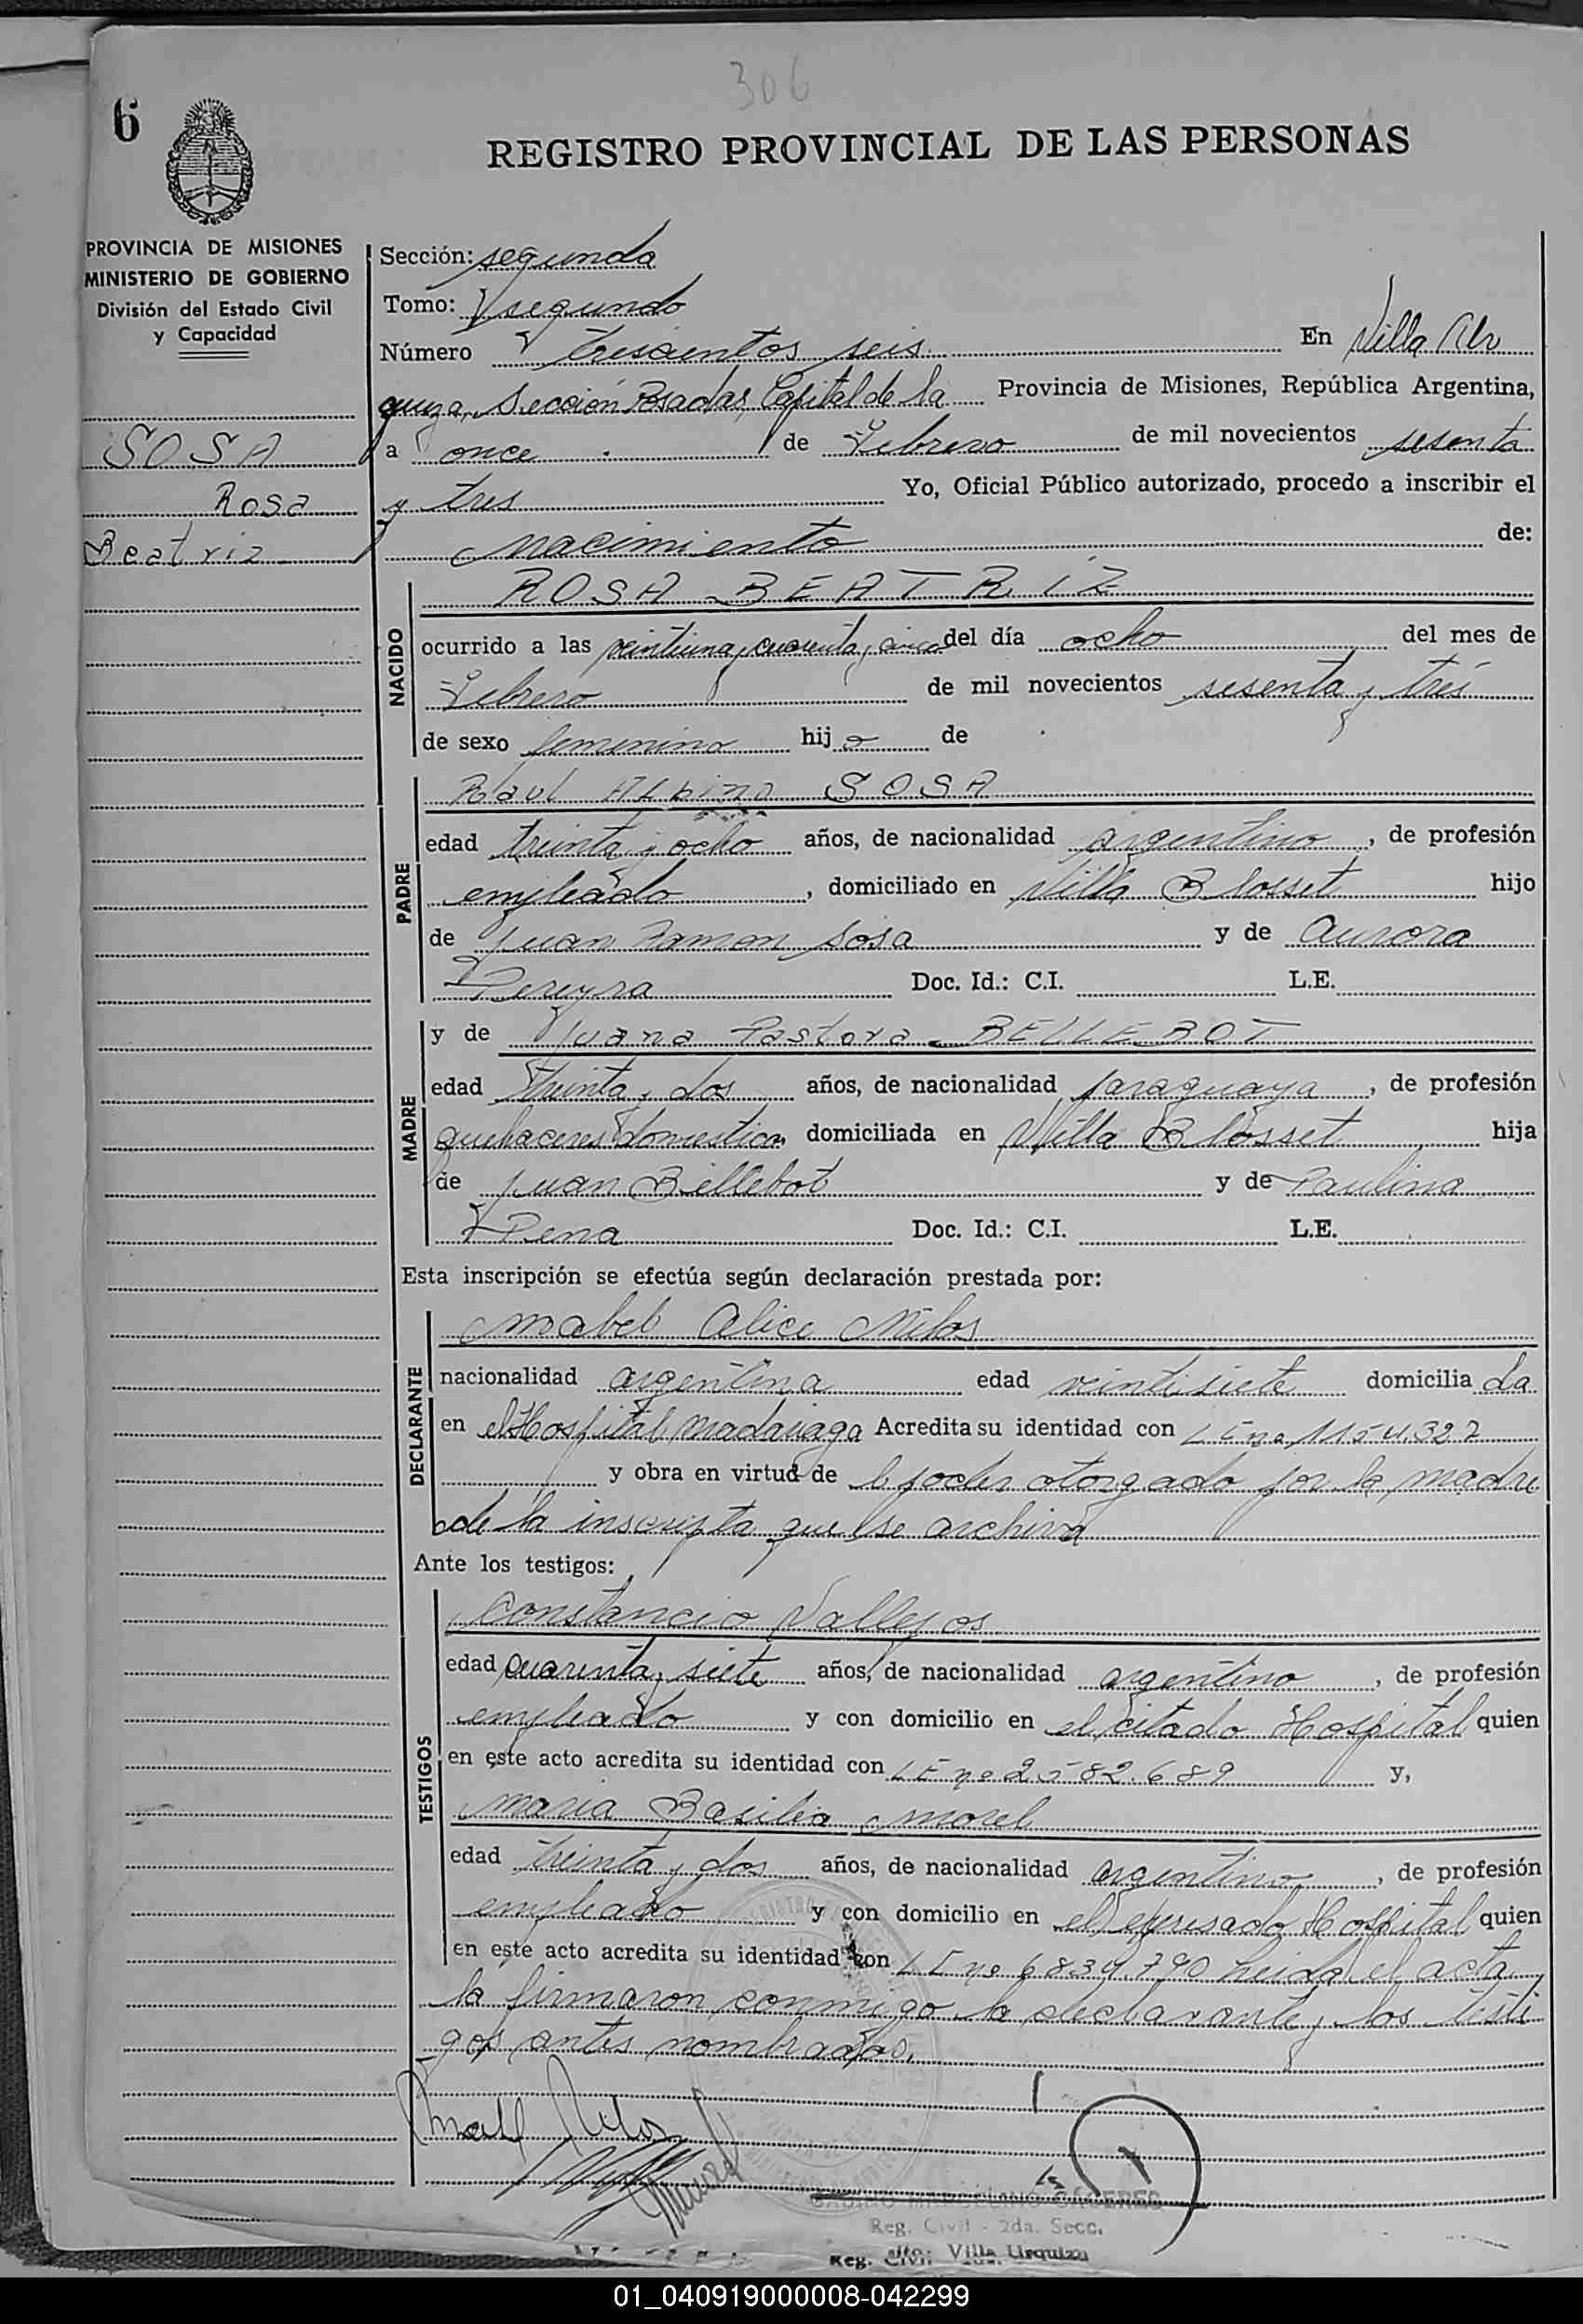 306
6
REGISTRO PROVINCIAL DE LAS PERSONAS
PROVINCIA DE MISIONES
MINISTERIO DE GOBIERNO
División del Estado Civil
y Capacidad
SOSA
Rosa
Beatriz
Sección: segunda
Tomo: segundo
Número trescientos seis En Villa Ur
quiza, Sección Posadas, Capital de la Provincia de Misiones, República Argentina,
a once de Febrero de mil novecientos sesenta
y tres Yo, Oficial Público autorizado, procedo a inscribir el
nacimiento de:
NACIDO
ROSA BEATRIZ
ocurrido a las veintiuna y cuarenta y cinco del día ocho del mes de
Febrero de mil novecientos sesenta y tres
de sexo femenino hija de
PADRE
Raul Albino SOSA
edad treinta y ocho años, de nacionalidad argentino, de profesión
empleado, domiciliado en Villa Blosset hijo
de Juan Ramon Sosa y de Aurora
Pereyra Doc. Id.: C.I. L.E.
MADRE
y de Juana Pastora BELLEBOT
edad treinta y dos años, de nacionalidad paraguaya, de profesión
quehaceres domesticos domiciliada en Villa Blosset hija
de Juan Bellebot y de Paulina
Pena Doc. Id.: C.I. L.E.
Esta inscripción se efectúa según declaración prestada por:
DECLARANTE
Mabel Alice Milos
nacionalidad argentina edad veintisiete domiciliada
en el Hospital Madariaga Acredita su identidad con LC no 1154.322
y obra en virtud de poder otorgado por la madre
de la inscripta que se archiva
Ante los testigos:
TESTIGOS
Constancio Vallejos
edad cuarenta y siete años, de nacionalidad argentino, de profesión
empleado y con domicilio en el citado Hospital quien
en este acto acredita su identidad con LE no 2582.689 y,
Maria Basilia Morel
edad treinta y dos años, de nacionalidad argentino, de profesión
empleado y con domicilio en el expresado Hospital quien
en este acto acredita su identidad con LC no 6839.790 Leida el acta
la firmaron conmigo la declarante y los testi
gos antes nombrados.
Mabel Milos
MARCELINO CACERES
Reg. Civil - 2da. Secc.
Villa Urquiza
01_040919000008-042299